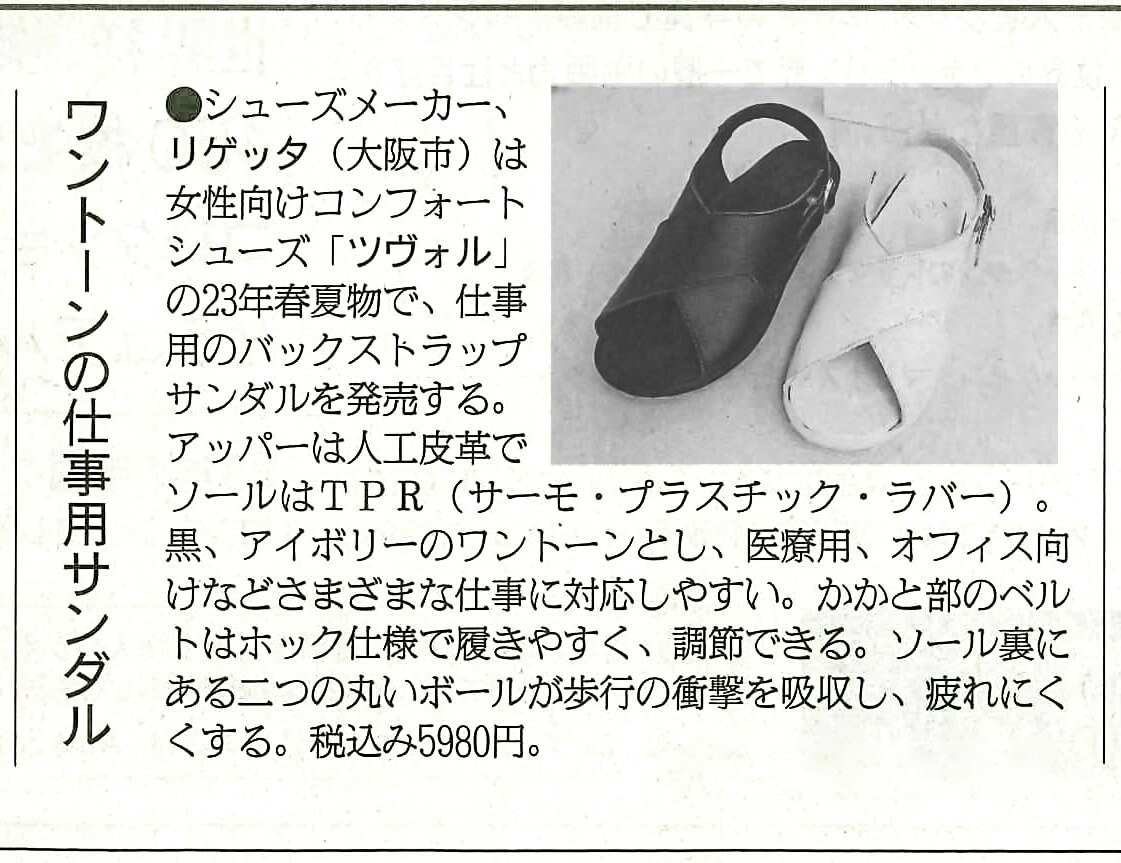 ワントーンの仕事用サンダル
●シューズメーカー、
リゲッタ（大阪市）は
女性向けコンフォート
シューズ「ツヴォル」
の23年春夏物で、仕事
用のバックストラップ
サンダルを発売する。
アッパーは人工皮革で
ソールはＴＰＲ（サーモ・プラスチック・ラバー）。
黒、アイボリーのワントーンとし、医療用、オフィス向
けなどさまざまな仕事に対応しやすい。かかと部のベル
トはホック仕様で履きやすく、調節できる。ソール裏に
ある二つの丸いボールが歩行の衝撃を吸収し、疲れにく
くする。税込み5980円。